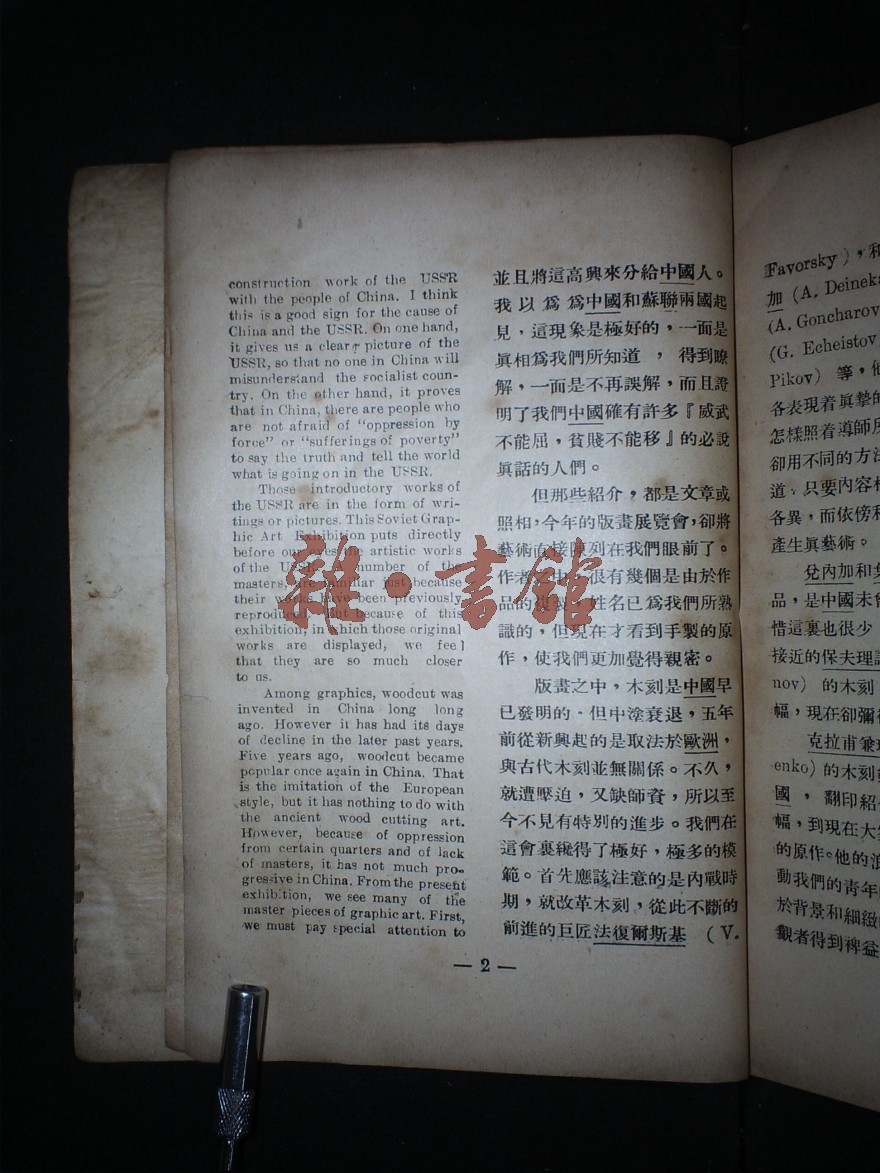 construction work of the USSR
with the people of China. I think
this is a good sign for the cause of
China and the USSR. On one hand,
it gives us a clear picture of the
USSR, so that no one in China will
misunderstand the socialist coun-
try. On the other hand, it proves
that in China, there are people who
are not afraid of "oppression by
force" or "sufferings of poverty"
to say the truth and tell the world
what is going on in the USSR.
Those introductory works of
the USSR are in the form of wri-
tings or pictures. This Soviet Grap-
hic Art Exhibition puts directly
before our eyes the artistic works
of the USSR. A number of the
masters, are familiar just because
their works have been previously
reproduced. But because of this
exhibition, in which those original
works are displayed, we feel
that they are so much closer
to us.
Among graphics, woodcut was
invented in China long long
ago. However it has had its days
of decline in the later past years.
Five years ago, woodcut became
popular once again in China. That
is the imitation of the European
style, but it has nothing to do with
the ancient wood cutting art.
However, because of oppression
from certain quarters and of lack
of masters, it has not much pro-
gressive in China. From the present
exhibition, we see many of the
master pieces of graphic art. First,
we must pay special attention to
並且將這高興來分給中國人。
我以爲爲中國和蘇聯兩國起
見，這現象是極好的，一面是
眞相爲我們所知道，得到瞭
解，一面是不再誤解，而且證
明了我們中國確有許多『威武
不能屈，貧賤不能移』的必說
眞話的人們。
但那些紹介，都是文章或
照相，今年的版畫展覽會，卻將
藝術直接陳列在我們眼前了。
作者之中，很有幾個是由於作
品的複製，姓名已爲我們所熟
識的，但現在才看到手製的原
作，使我們更加覺得親密。
版畫之中，木刻是中國早
已發明的，但中塗衰退，五年
前從新興起的是取法於歐洲，
與古代木刻並無關係。不久，
就遭壓迫，又缺師資，所以至
今不見有特別的進步。我們在
這會裏纔得了極好，極多的模
範。首先應該注意的是內戰時
期，就改革木刻，從此不斷的
前進的巨匠法復爾斯基（V.
— 2 —
Favorsky），和
加（A. Deineka
（A. Goncharov
（G. Echeistov
Pikov）等，他
各表現着眞摯的
怎樣照着導師所
卻用不同的方法
道，只要內容相
各異，而依傍和
產生眞藝術。
兌內加和
品，是中國未曾
惜這裏也很少，
接近的保夫理諾
nov）的木刻
幅，現在卻彌
克拉甫兼珂
enko）的木刻
國，翻印紹
幅，到現在大
的原作。他的浪
動我們的青年
於背景和細緻
觀者得到裨益
雜·書館